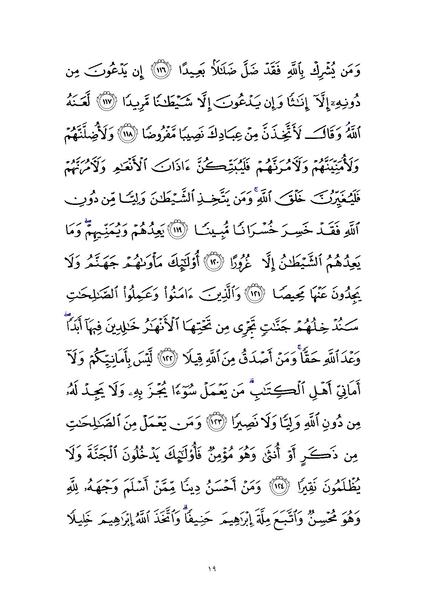 وَمَن يُشْرِكْ بِٱللَّهِ فَقَدْ ضَلَّ ضَلَٰلًۢا بَعِيدًا ١١٦ إِن يَدْعُونَ مِن
دُونِهِۦٓ إِلَّآ إِنَٰثًا وَإِن يَدْعُونَ إِلَّا شَيْطَٰنًا مَّرِيدًا ١١٧ لَّعَنَهُ
ٱللَّهُ وَقَالَ لَأَتَّخِذَنَّ مِنْ عِبَادِكَ نَصِيبًا مَّفْرُوضًا ١١٨ وَلَأُضِلَّنَّهُمْ
وَلَأُمَنِّيَنَّهُمْ وَلَءَامُرَنَّهُمْ فَلَيُبَتِّكُنَّ ءَاذَانَ ٱلْأَنْعَٰمِ وَلَءَامُرَنَّهُمْ
فَلَيُغَيِّرُنَّ خَلْقَ ٱللَّهِ ۚ وَمَن يَتَّخِذِ ٱلشَّيْطَٰنَ وَلِيًّا مِّن دُونِ
ٱللَّهِ فَقَدْ خَسِرَ خُسْرَانًا مُّبِينًا ١١٩ يَعِدُهُمْ وَيُمَنِّيهِمْ ۖ وَمَا
يَعِدُهُمُ ٱلشَّيْطَٰنُ إِلَّا غُرُورًا ١٢٠ أُو۟لَٰٓئِكَ مَأْوَىٰهُمْ جَهَنَّمُ وَلَا
يَجِدُونَ عَنْهَا مَحِيصًا ١٢١ وَٱلَّذِينَ ءَامَنُوا۟ وَعَمِلُوا۟ ٱلصَّٰلِحَٰتِ
سَنُدْخِلُهُمْ جَنَّٰتٍ تَجْرِى مِن تَحْتِهَا ٱلْأَنْهَٰرُ خَٰلِدِينَ فِيهَآ أَبَدًا ۖ
وَعْدَ ٱللَّهِ حَقًّا ۚ وَمَنْ أَصْدَقُ مِنَ ٱللَّهِ قِيلًا ١٢٢ لَّيْسَ بِأَمَانِيِّكُمْ وَلَآ
أَمَانِىِّ أَهْلِ ٱلْكِتَٰبِ ۗ مَن يَعْمَلْ سُوٓءًا يُجْزَ بِهِۦ وَلَا يَجِدْ لَهُۥ
مِن دُونِ ٱللَّهِ وَلِيًّا وَلَا نَصِيرًا ١٢٣ وَمَن يَعْمَلْ مِنَ ٱلصَّٰلِحَٰتِ
مِن ذَكَرٍ أَوْ أُنثَىٰ وَهُوَ مُؤْمِنٌ فَأُو۟لَٰٓئِكَ يَدْخُلُونَ ٱلْجَنَّةَ وَلَا
يُظْلَمُونَ نَقِيرًا ١٢٤ وَمَنْ أَحْسَنُ دِينًا مِّمَّنْ أَسْلَمَ وَجْهَهُۥ لِلَّهِ
وَهُوَ مُحْسِنٌ وَٱتَّبَعَ مِلَّةَ إِبْرَٰهِيمَ حَنِيفًا ۗ وَٱتَّخَذَ ٱللَّهُ إِبْرَٰهِيمَ خَلِيلًا
١٩